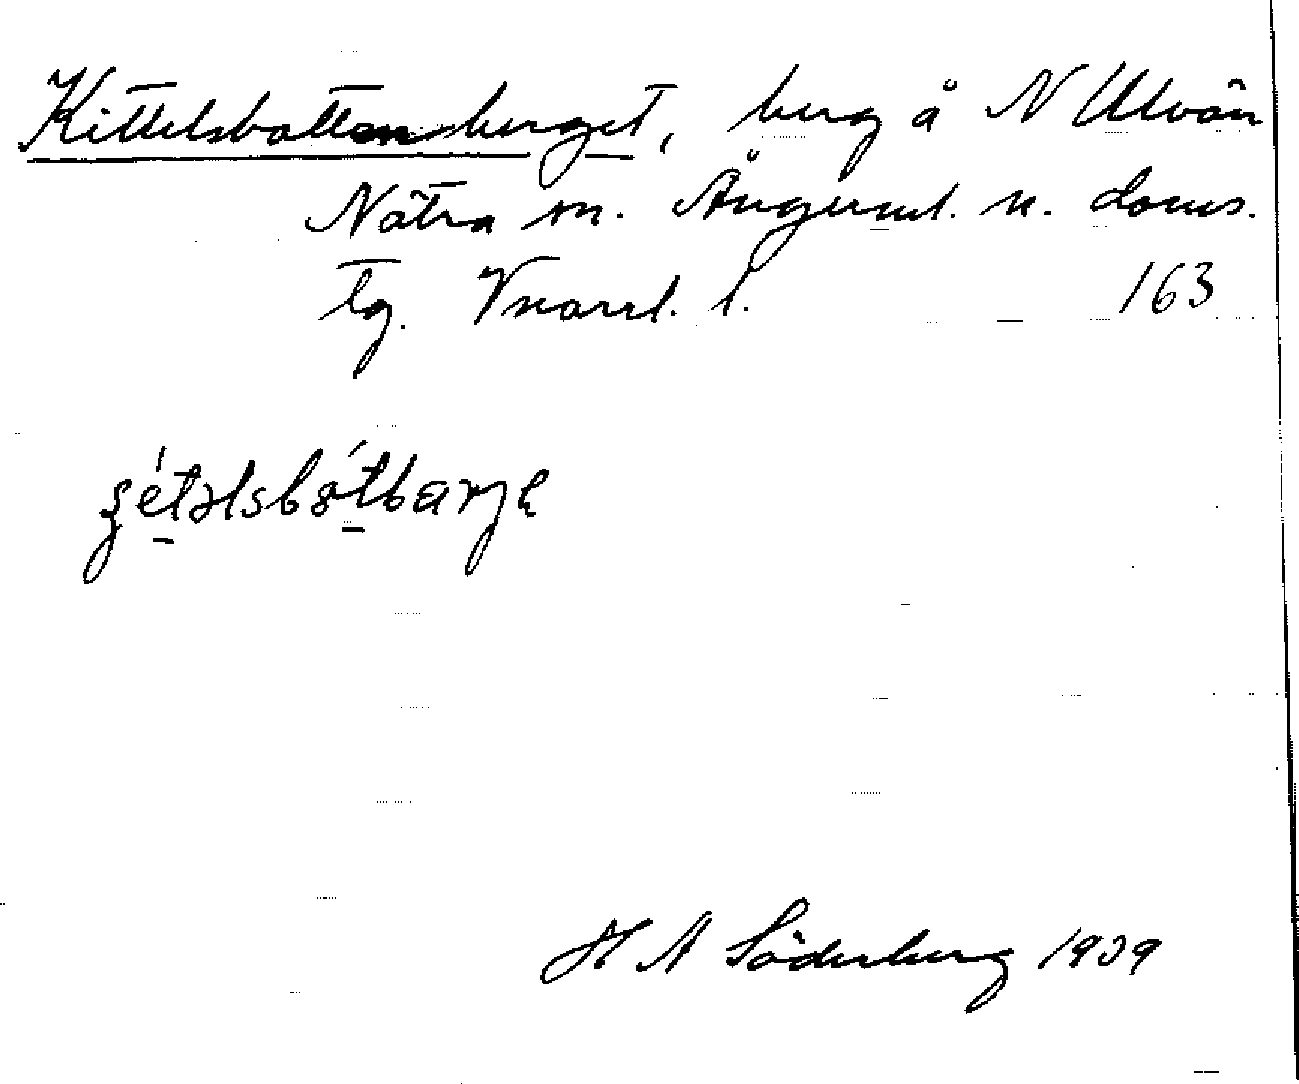 Kittelsbottenberget, berg å N Ulvön
Nätra sn. Ångerml. n. doms.
tg. Vnorrl. l. 163
H A Söderberg 1939